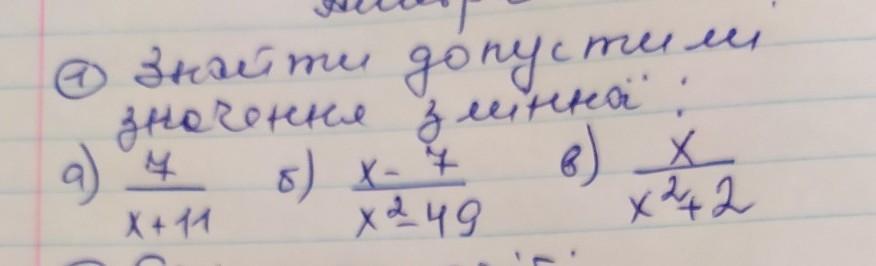 ① Знайти допустимі
значення змінної:
а) 7/(x+11) б) (x-7)/(x²-49) в) x/(x²+2)